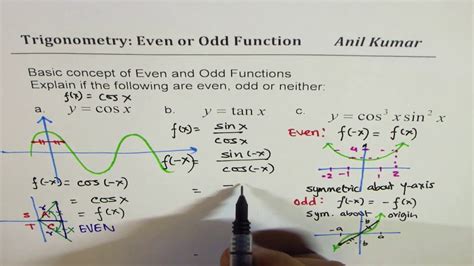 Trigonometry: Even or Odd Function Anil Kumar
Basic concept of Even and Odd Functions
Explain if the following are even, odd or neither:
f(x) = cos x
a. y = cos x b. y = tan x c. y = cos³ x sin² x
f(x) = sin x / cos x
Even: f(-x) = f(x)
f(-x) = sin(-x) / cos(-x)
-2 -1 1 2
f(-x) = cos(-x)
= cos x
= f(x)
EVEN
S A
T C
= -
symmetric about y-axis
odd: f(-x) = -f(x)
Sym. about origin
-a a
b
-b